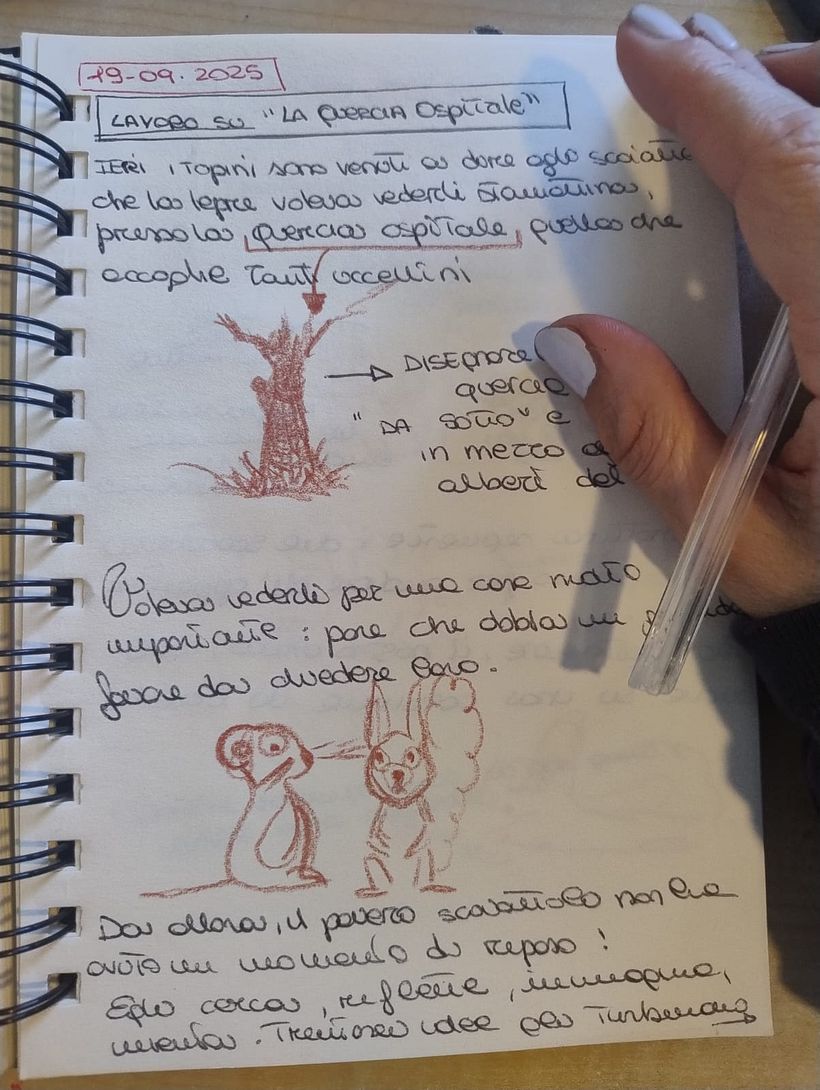 19-09.2025
LAVORO SU "LA QUERCIA OSPITALE"
IERI i TOPINI sono venuti a dire allo scoiatto
che la lepre voleva vederli stamattina,
presso la quercia ospitale, quella che
accoglie tanti uccellini
DISEGNARE
quercia
"DA SOTTO" e
in mezzo a
alberi del
Voleva vederli per una cosa molto
importante: pare che debba un
favore da chiedere loro.
Da allora, il povero scoiattolo non ha
avuto un momento di riposo!
Egli cerca, riflette, immagina,
inventa. Trentasei idee gli turbinano